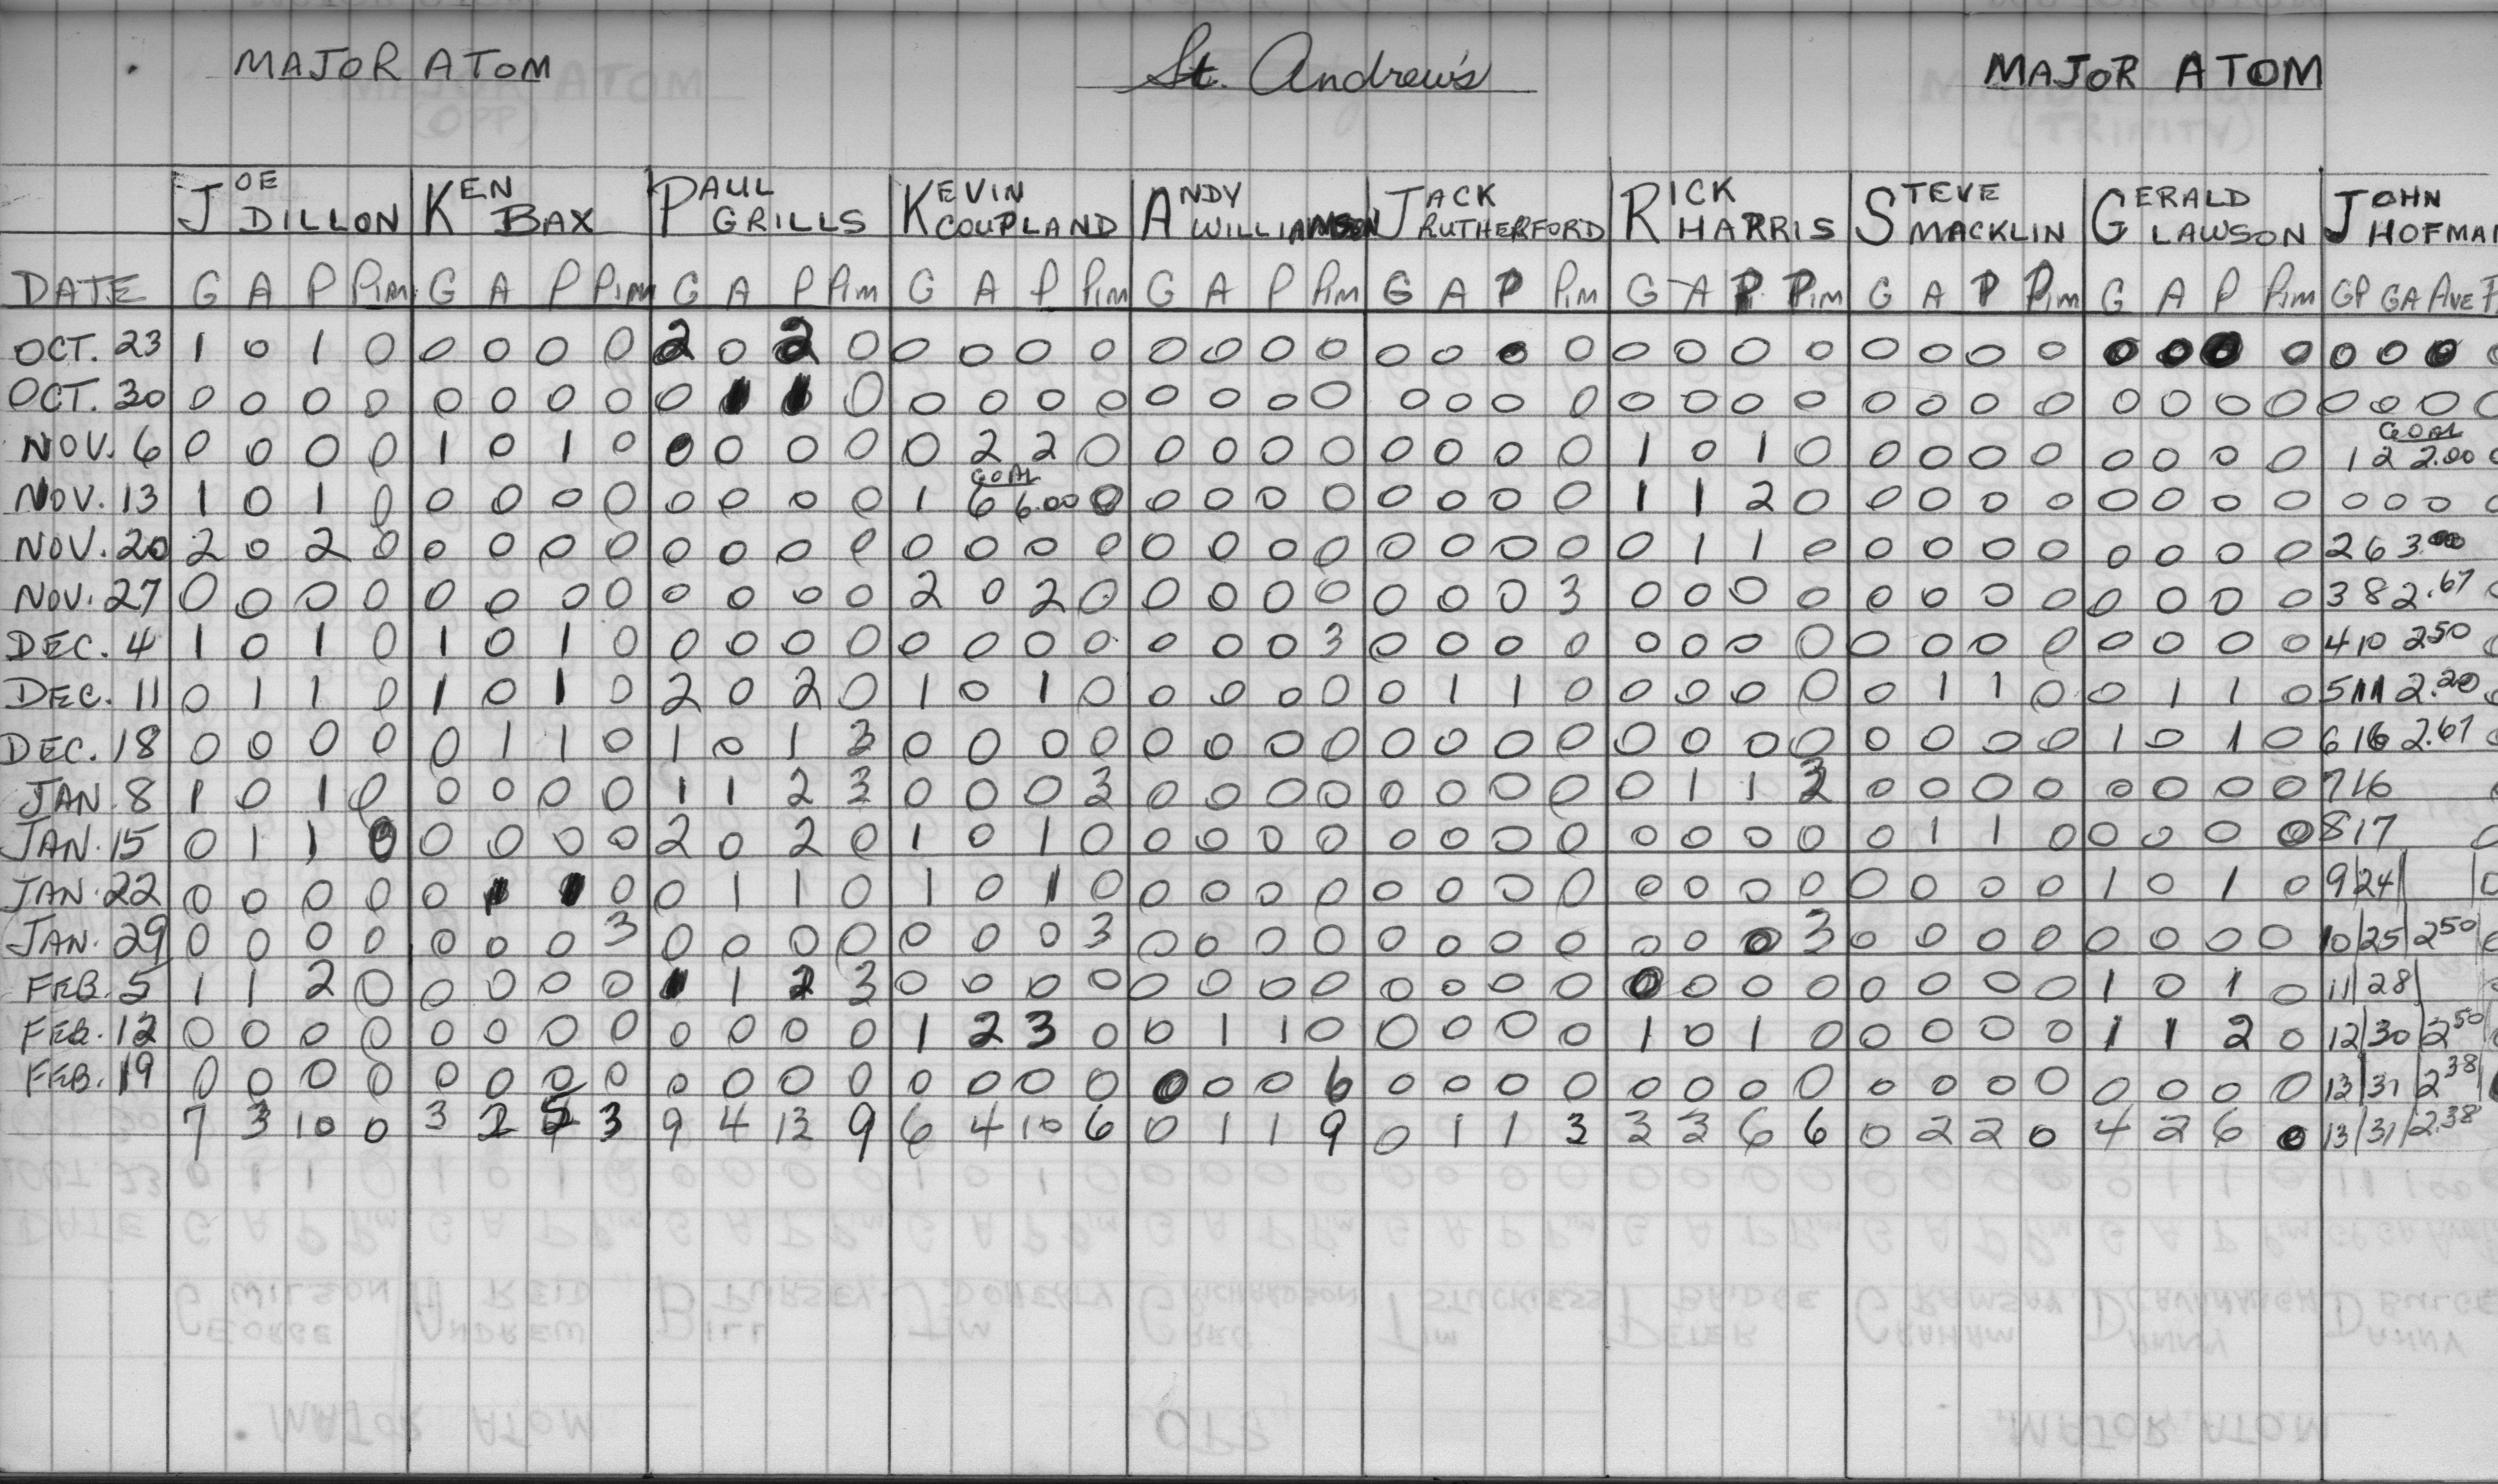 MAJOR ATOM St. Andrew's MAJOR ATOM
JOE DILLON KEN BAX PAUL GRILLS KEVIN COUPLAND ANDY WILLIAMSON JACK RUTHERFORD RICK HARRIS STEVE MACKLIN GERALD LAWSON JOHN HOFMAN
DATE G A P PIM G A P PIM G A P PIM G A P PIM G A P PIM G A P PIM G A P PIM G A P PIM G A P PIM GP GA AVE P
OCT. 23 1 0 1 0 0 0 0 0 2 0 2 0 0 0 0 0 0 0 0 0 0 0 0 0 0 0 0 0 0 0 0 0 0 0 0 0 0 0 0 0
OCT. 30 0 0 0 0 0 0 0 0 0 1 1 0 0 0 0 0 0 0 0 0 0 0 0 0 0 0 0 0 0 0 0 0 0 0 0 0 0 0 0 0
NOV. 6 0 0 0 0 1 0 1 0 0 0 0 0 0 2 2 0 0 0 0 0 0 0 0 0 1 0 1 0 0 0 0 0 0 0 0 0 GOAL 1 2 2.00 0
NOV. 13 1 0 1 0 0 0 0 0 0 0 0 0 GOAL 1 6 6.00 0 0 0 0 0 0 0 0 0 1 1 2 0 0 0 0 0 0 0 0 0 0 0 0 0
NOV. 20 2 0 2 0 0 0 0 0 0 0 0 0 0 0 0 0 0 0 0 0 0 0 0 0 0 1 1 0 0 0 0 0 0 0 0 0 2 6 3.00
NOV. 27 0 0 0 0 0 0 0 0 0 0 0 0 2 0 2 0 0 0 0 0 0 0 0 3 0 0 0 0 0 0 0 0 0 0 0 0 3 8 2.67 0
DEC. 4 1 0 1 0 1 0 1 0 0 0 0 0 0 0 0 0 0 0 0 3 0 0 0 0 0 0 0 0 0 0 0 0 0 0 0 0 4 10 2.50 0
DEC. 11 0 1 1 0 1 0 1 0 2 0 2 0 1 0 1 0 0 0 0 0 0 1 1 0 0 0 0 0 0 1 1 0 0 1 1 0 5 11 2.20 0
DEC. 18 0 0 0 0 0 1 1 0 1 0 1 3 0 0 0 0 0 0 0 0 0 0 0 0 0 0 0 0 0 0 0 0 1 0 1 0 6 16 2.67 0
JAN. 8 1 0 1 0 0 0 0 0 1 1 2 3 0 0 0 3 0 0 0 0 0 0 0 0 0 1 1 3 0 0 0 0 0 0 0 0 7 16
JAN. 15 0 1 1 0 0 0 0 0 2 0 2 0 1 0 1 0 0 0 0 0 0 0 0 0 0 0 0 0 0 1 1 0 0 0 0 0 8 17 0
JAN. 22 0 0 0 0 0 1 1 0 0 1 1 0 1 0 1 0 0 0 0 0 0 0 0 0 0 0 0 0 0 0 0 0 1 0 1 0 9|24| |0
JAN. 29 0 0 0 0 0 0 0 3 0 0 0 0 0 0 0 3 0 0 0 0 0 0 0 0 0 0 0 3 0 0 0 0 0 0 0 0 10|25|2 50|0
FEB. 5 1 1 2 0 0 0 0 0 1 1 2 3 0 0 0 0 0 0 0 0 0 0 0 0 0 0 0 0 0 0 0 0 1 0 1 0 11|28|
FEB. 12 0 0 0 0 0 0 0 0 0 0 0 0 1 2 3 0 0 1 1 0 0 0 0 0 1 0 1 0 0 0 0 0 1 1 2 0 12|30|2 50
FEB. 19 0 0 0 0 0 0 0 0 0 0 0 0 0 0 0 0 0 0 0 6 0 0 0 0 0 0 0 0 0 0 0 0 0 0 0 0 13|31|2 38|
7 3 10 0 3 2 5 3 9 4 13 9 6 4 10 6 0 1 1 9 0 1 1 3 3 3 6 6 0 2 2 0 4 2 6 0 13|31|2.38